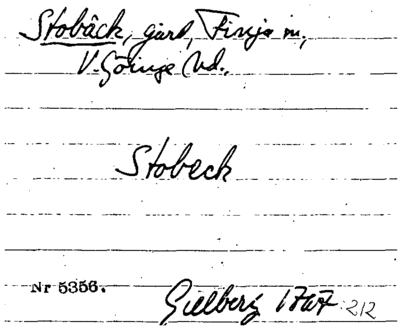 Stobäck, gård, Finja sn,
V. Göinge hd.
Stobeck
Nr 5356.
Gillberg 1767 212